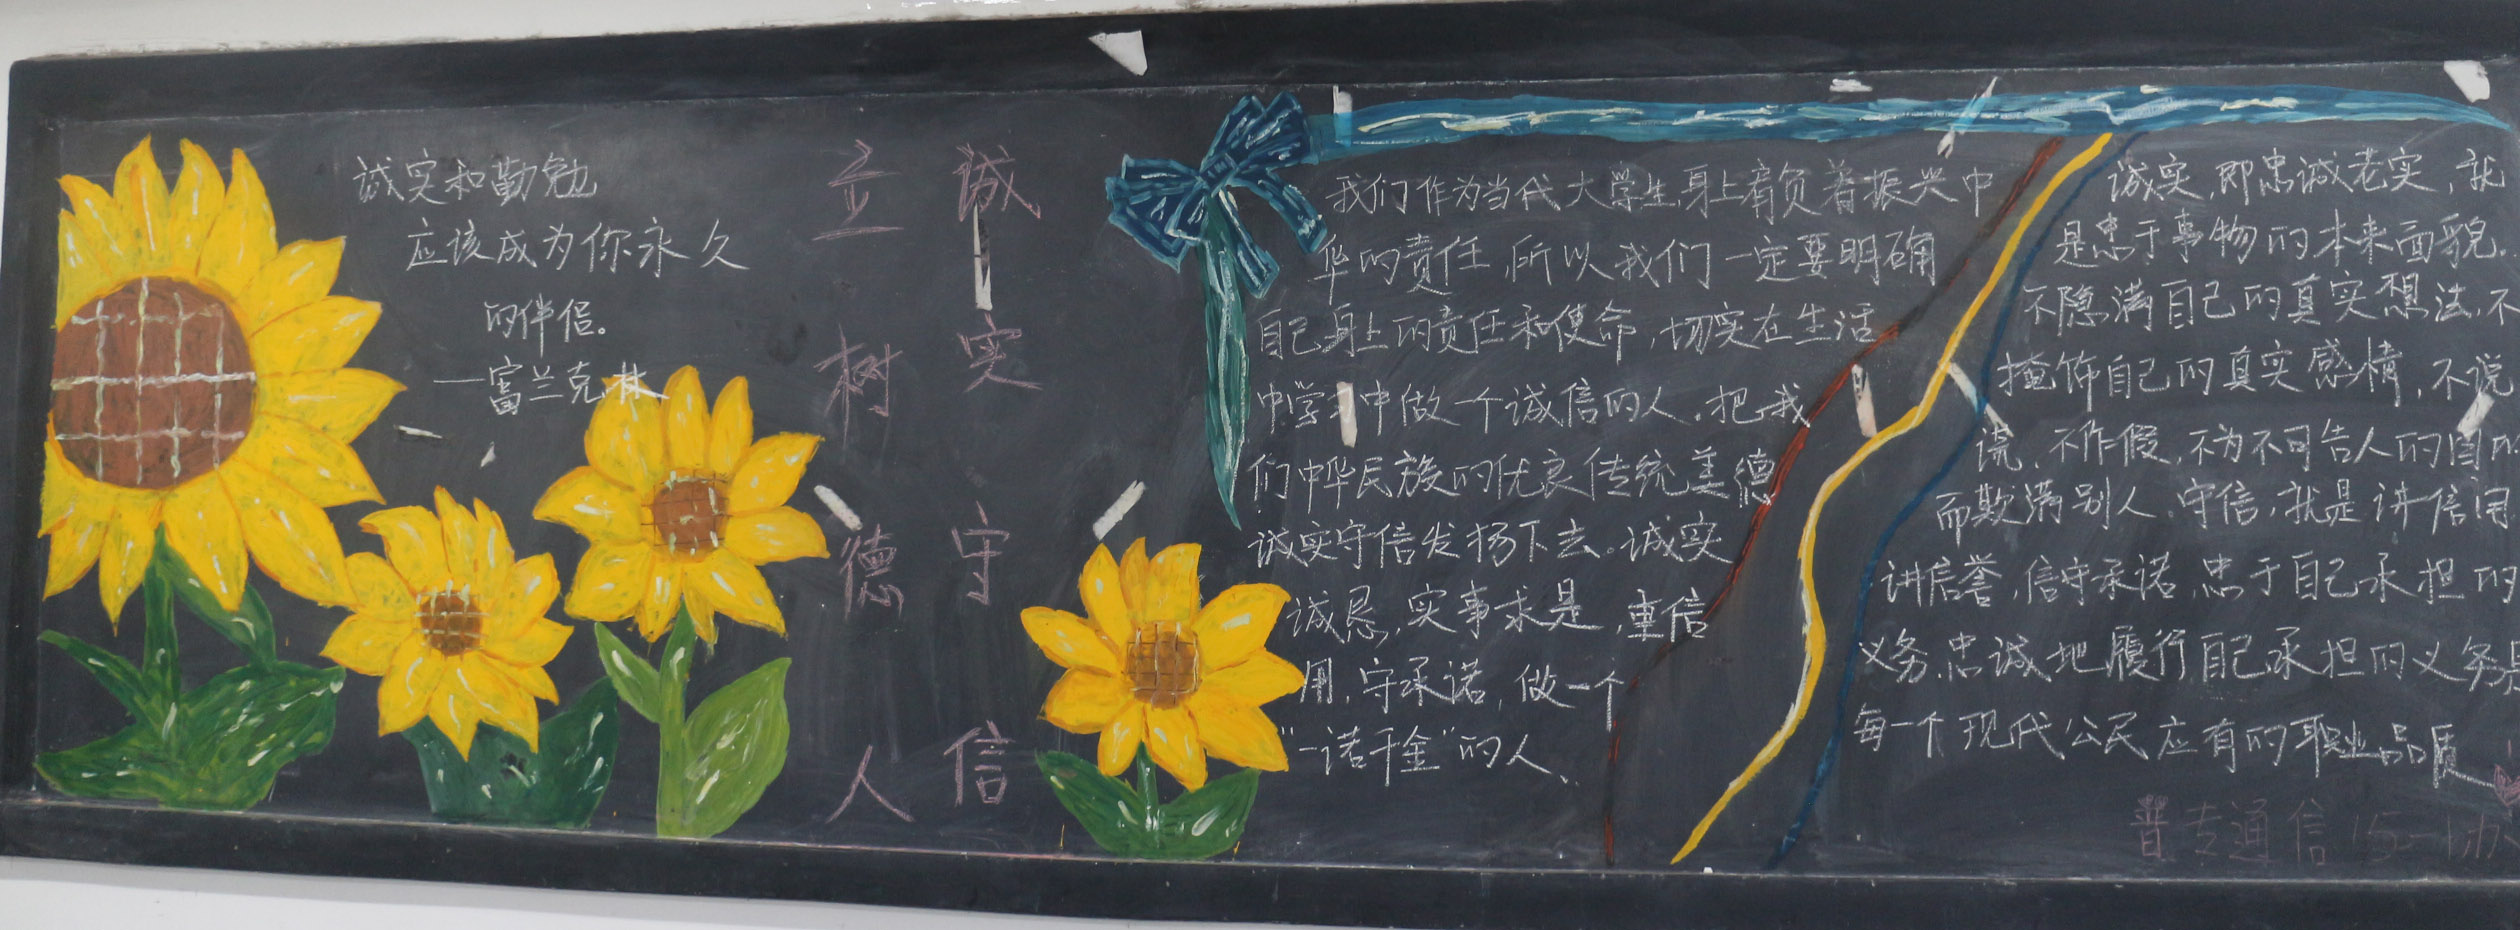 诚实和勤勉
应该成为你永久
的伴侣。
—富兰克林
诚实守信
立树德人
我们作为当代大学生,身上肩负着振兴中
华的责任,所以我们一定要明确
自己身上的责任和使命,切实在生活
中学习中做一个诚信的人.把我
们中华民族的优良传统美德
诚实守信发扬下去。诚实
诚恳,实事求是,重信
用,守承诺,做一个
"一诺千金"的人、
诚实,即忠诚老实,就
是忠于事物的本来面貌.
不隐满自己的真实想法,不
掩饰自己的真实感情,不说
谎,不作假,不为不可告人的目的
而欺满别人.守信,就是讲信用
讲信誉,信守承诺,忠于自己承担的
义务.忠诚地履行自己承担的义务是
每一个现代公民应有的职业品质
普专通信15-1办